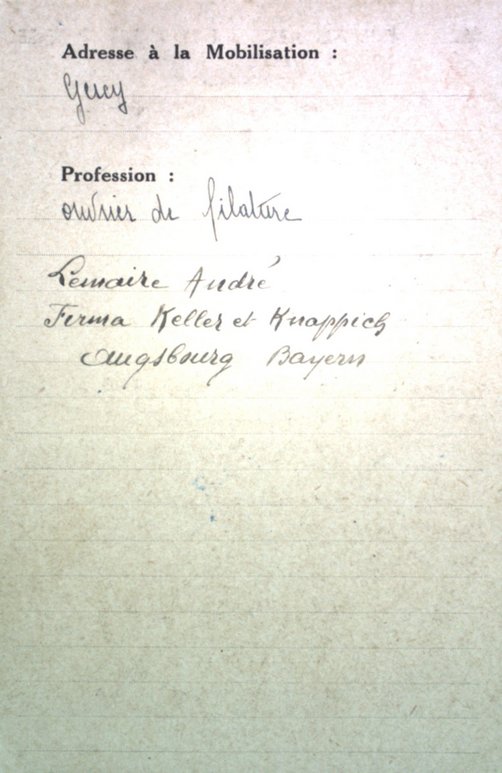 Adresse à la Mobilisation :
Gercy
Profession :
ouvrier de filature
Lemaire André
Firma Keller et Knappich
Augsbourg Bayern